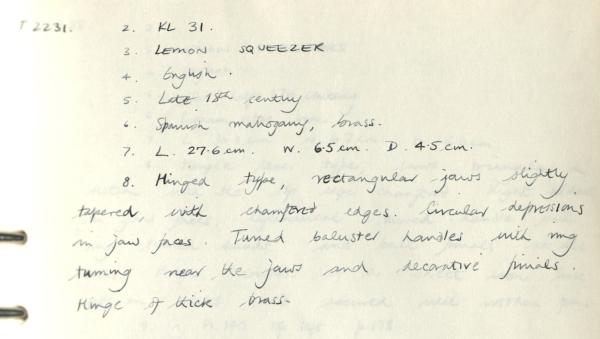 T 2231. 2. KL 31.
3. LEMON SQUEEZER
4. English.
5. Late 18th century
6. Spanish mahogany, brass.
7. L. 27.6 cm. W. 6.5 cm. D. 4.5 cm.
8. Hinged type, rectangular jaws slightly
tapered, with chamfered edges. Circular depressions
in jaw faces. Turned baluster handles with ring
turning near the jaws and decorative finials.
Hinge of thick brass.